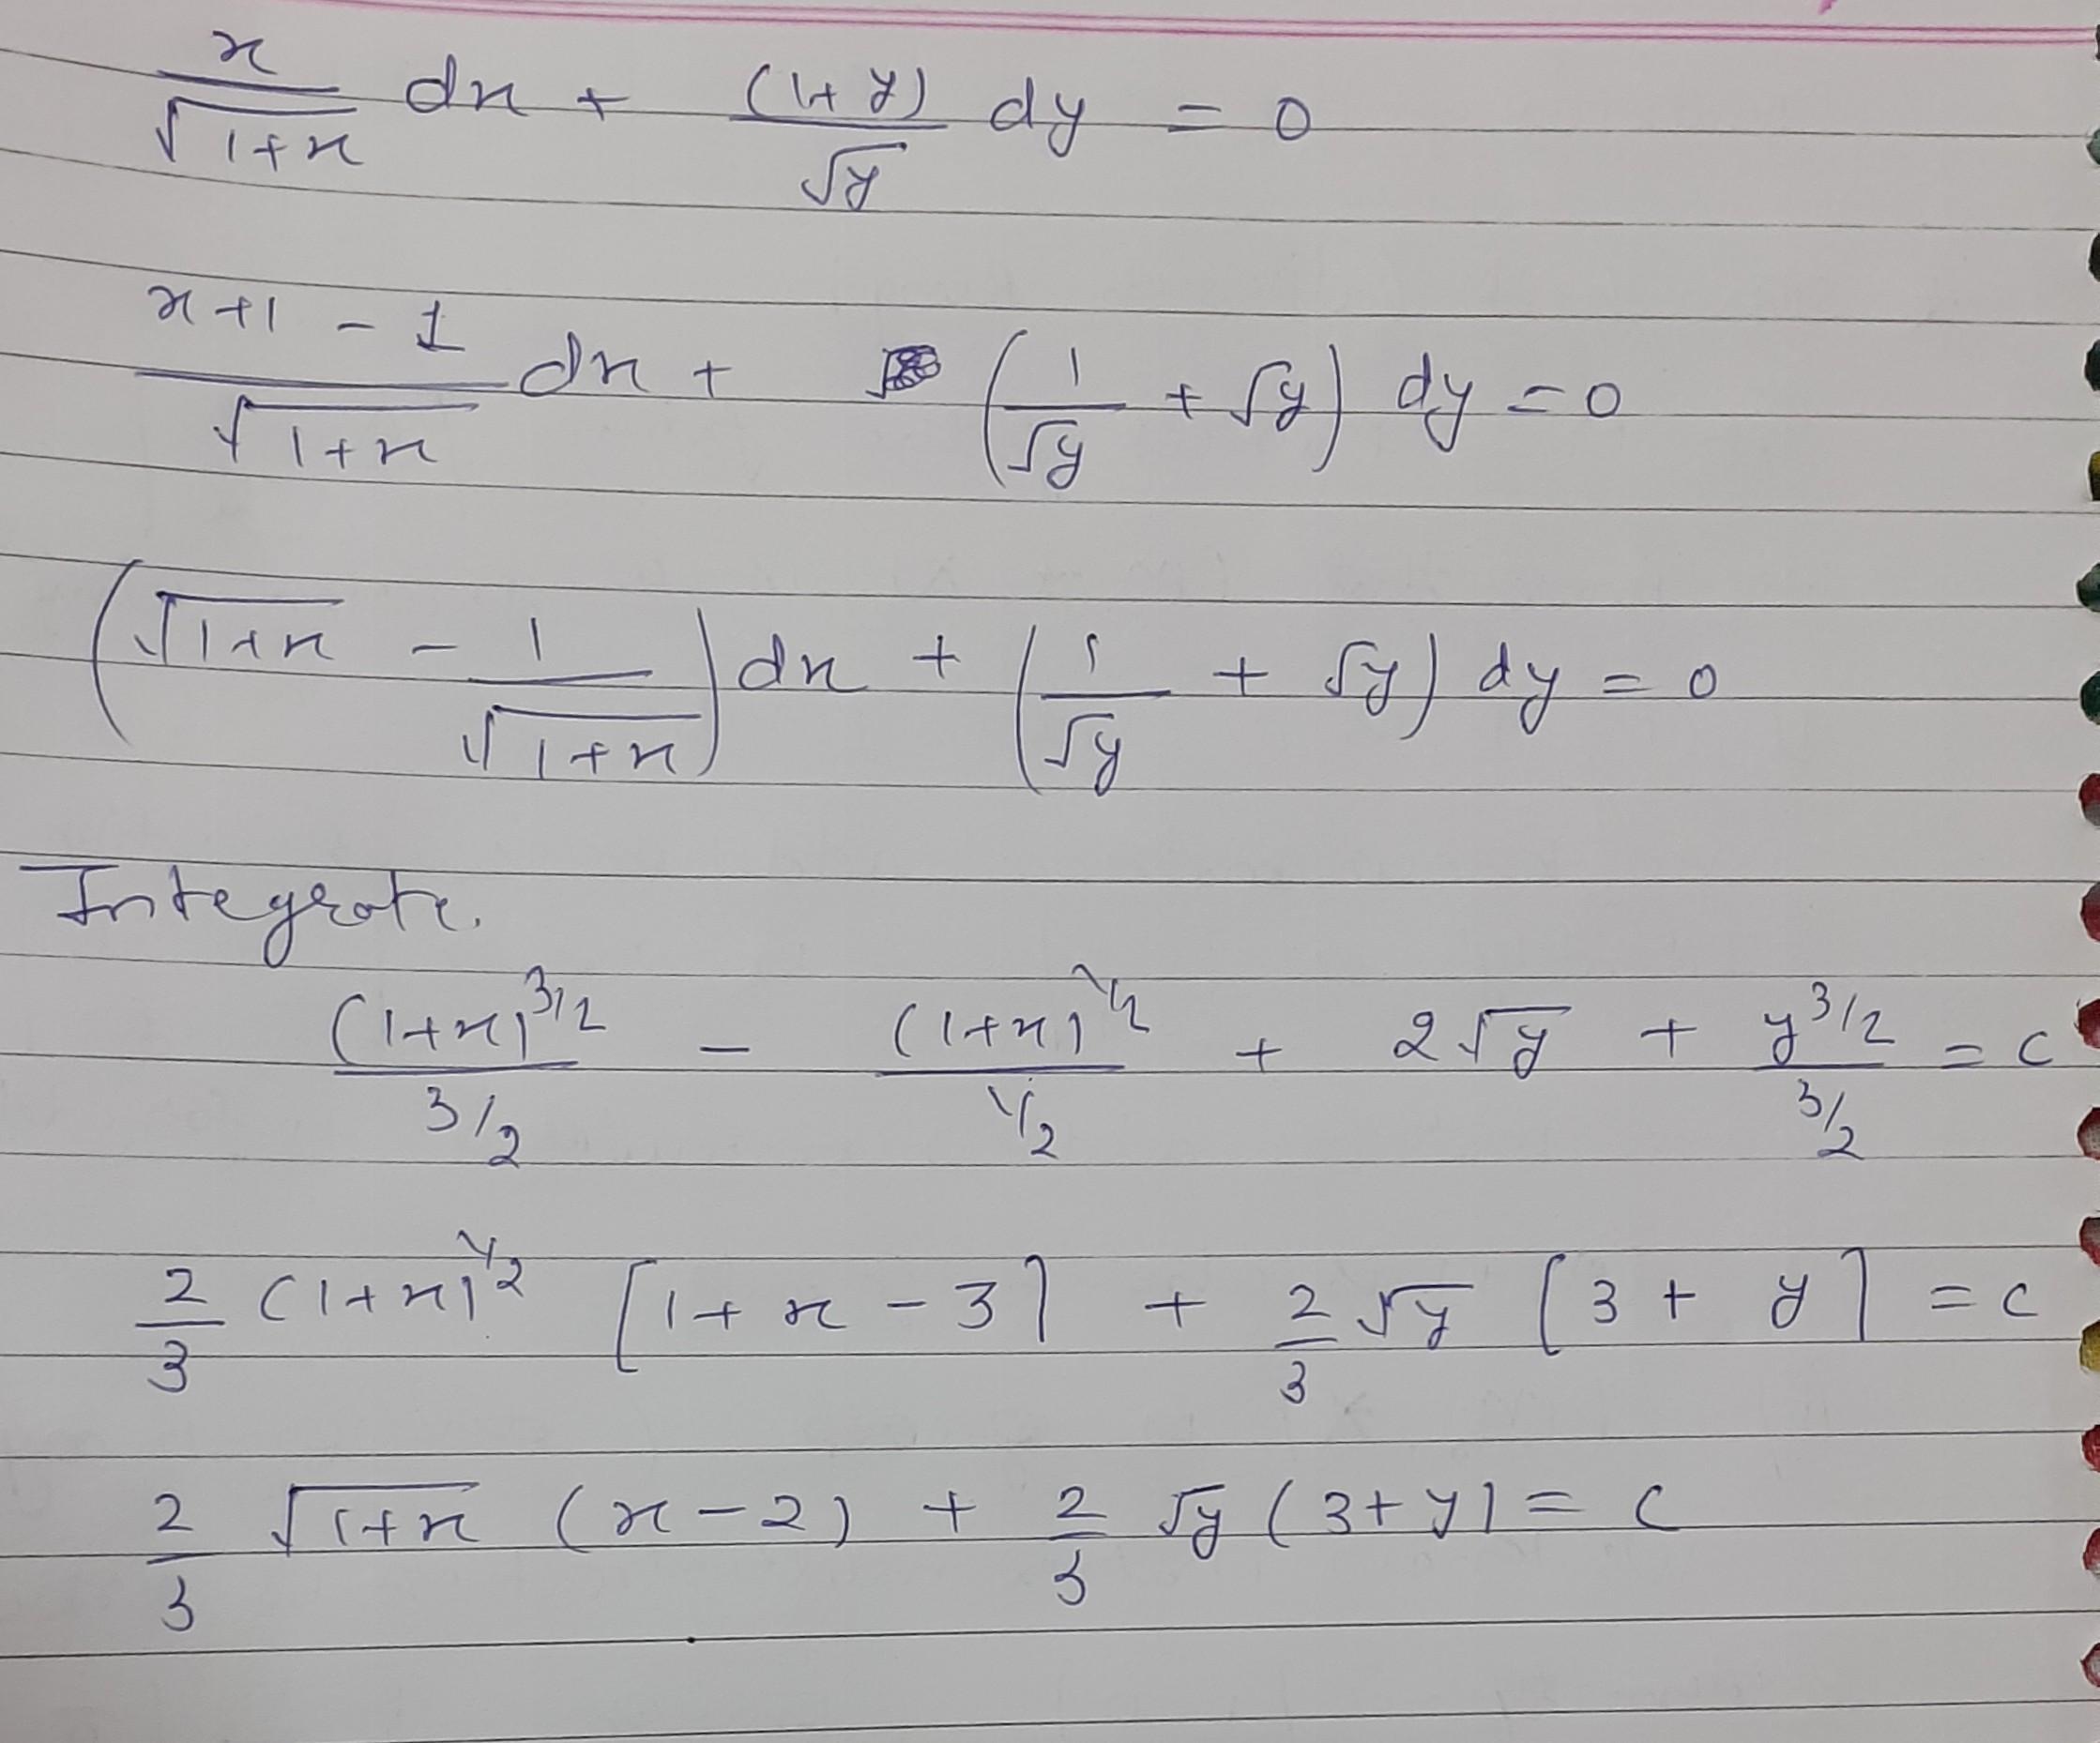 x/√(1+x) dx + (1+y)/√y dy = 0
(x+1-1)/√(1+x) dx + (1/√y + √y) dy = 0
(√(1+x) - 1/√(1+x)) dx + (1/√y + √y) dy = 0
Integrate.
(1+x)^(3/2)/(3/2) - (1+x)^(1/2)/(1/2) + 2√y + y^(3/2)/(3/2) = c
2/3 (1+x)^(1/2) [1+x-3] + 2/3 √y [3+y] = c
2/3 √(1+x) (x-2) + 2/3 √y (3+y) = c